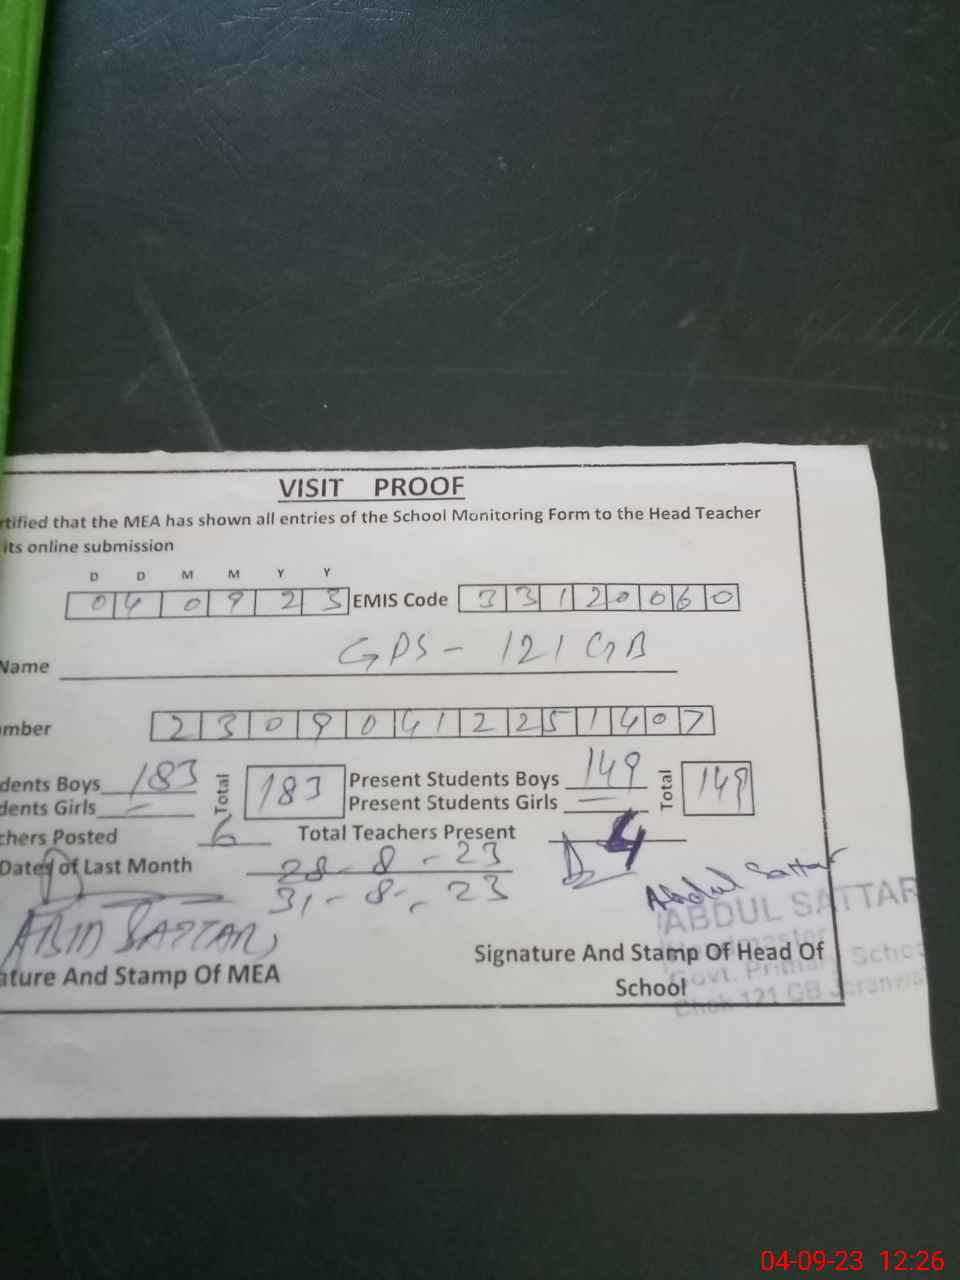 VISIT PROOF
rtified that the MEA has shown all entries of the School Monitoring Form to the Head Teacher
its online submission
D D M M Y Y
0 4 0 9 2 3 EMIS Code 3 3 1 2 0 0 6 0
Name GPS - 121 GB
mber 2 3 0 9 0 4 1 2 2 5 1 4 0 7
dents Boys 183 Total 183 Present Students Boys 149 Total 149
dents Girls — Present Students Girls —
chers Posted 6 Total Teachers Present 4
Dates of Last Month 28-8-23
31-8-23
Abdul Sattar
ABID SATTAR
ABDUL SATTAR
Headmaster
Signature And Stamp Of Head Of
Govt. Primary School
ature And Stamp Of MEA
School
Chak 121 GB Jaranwala
04-09-23 12:26